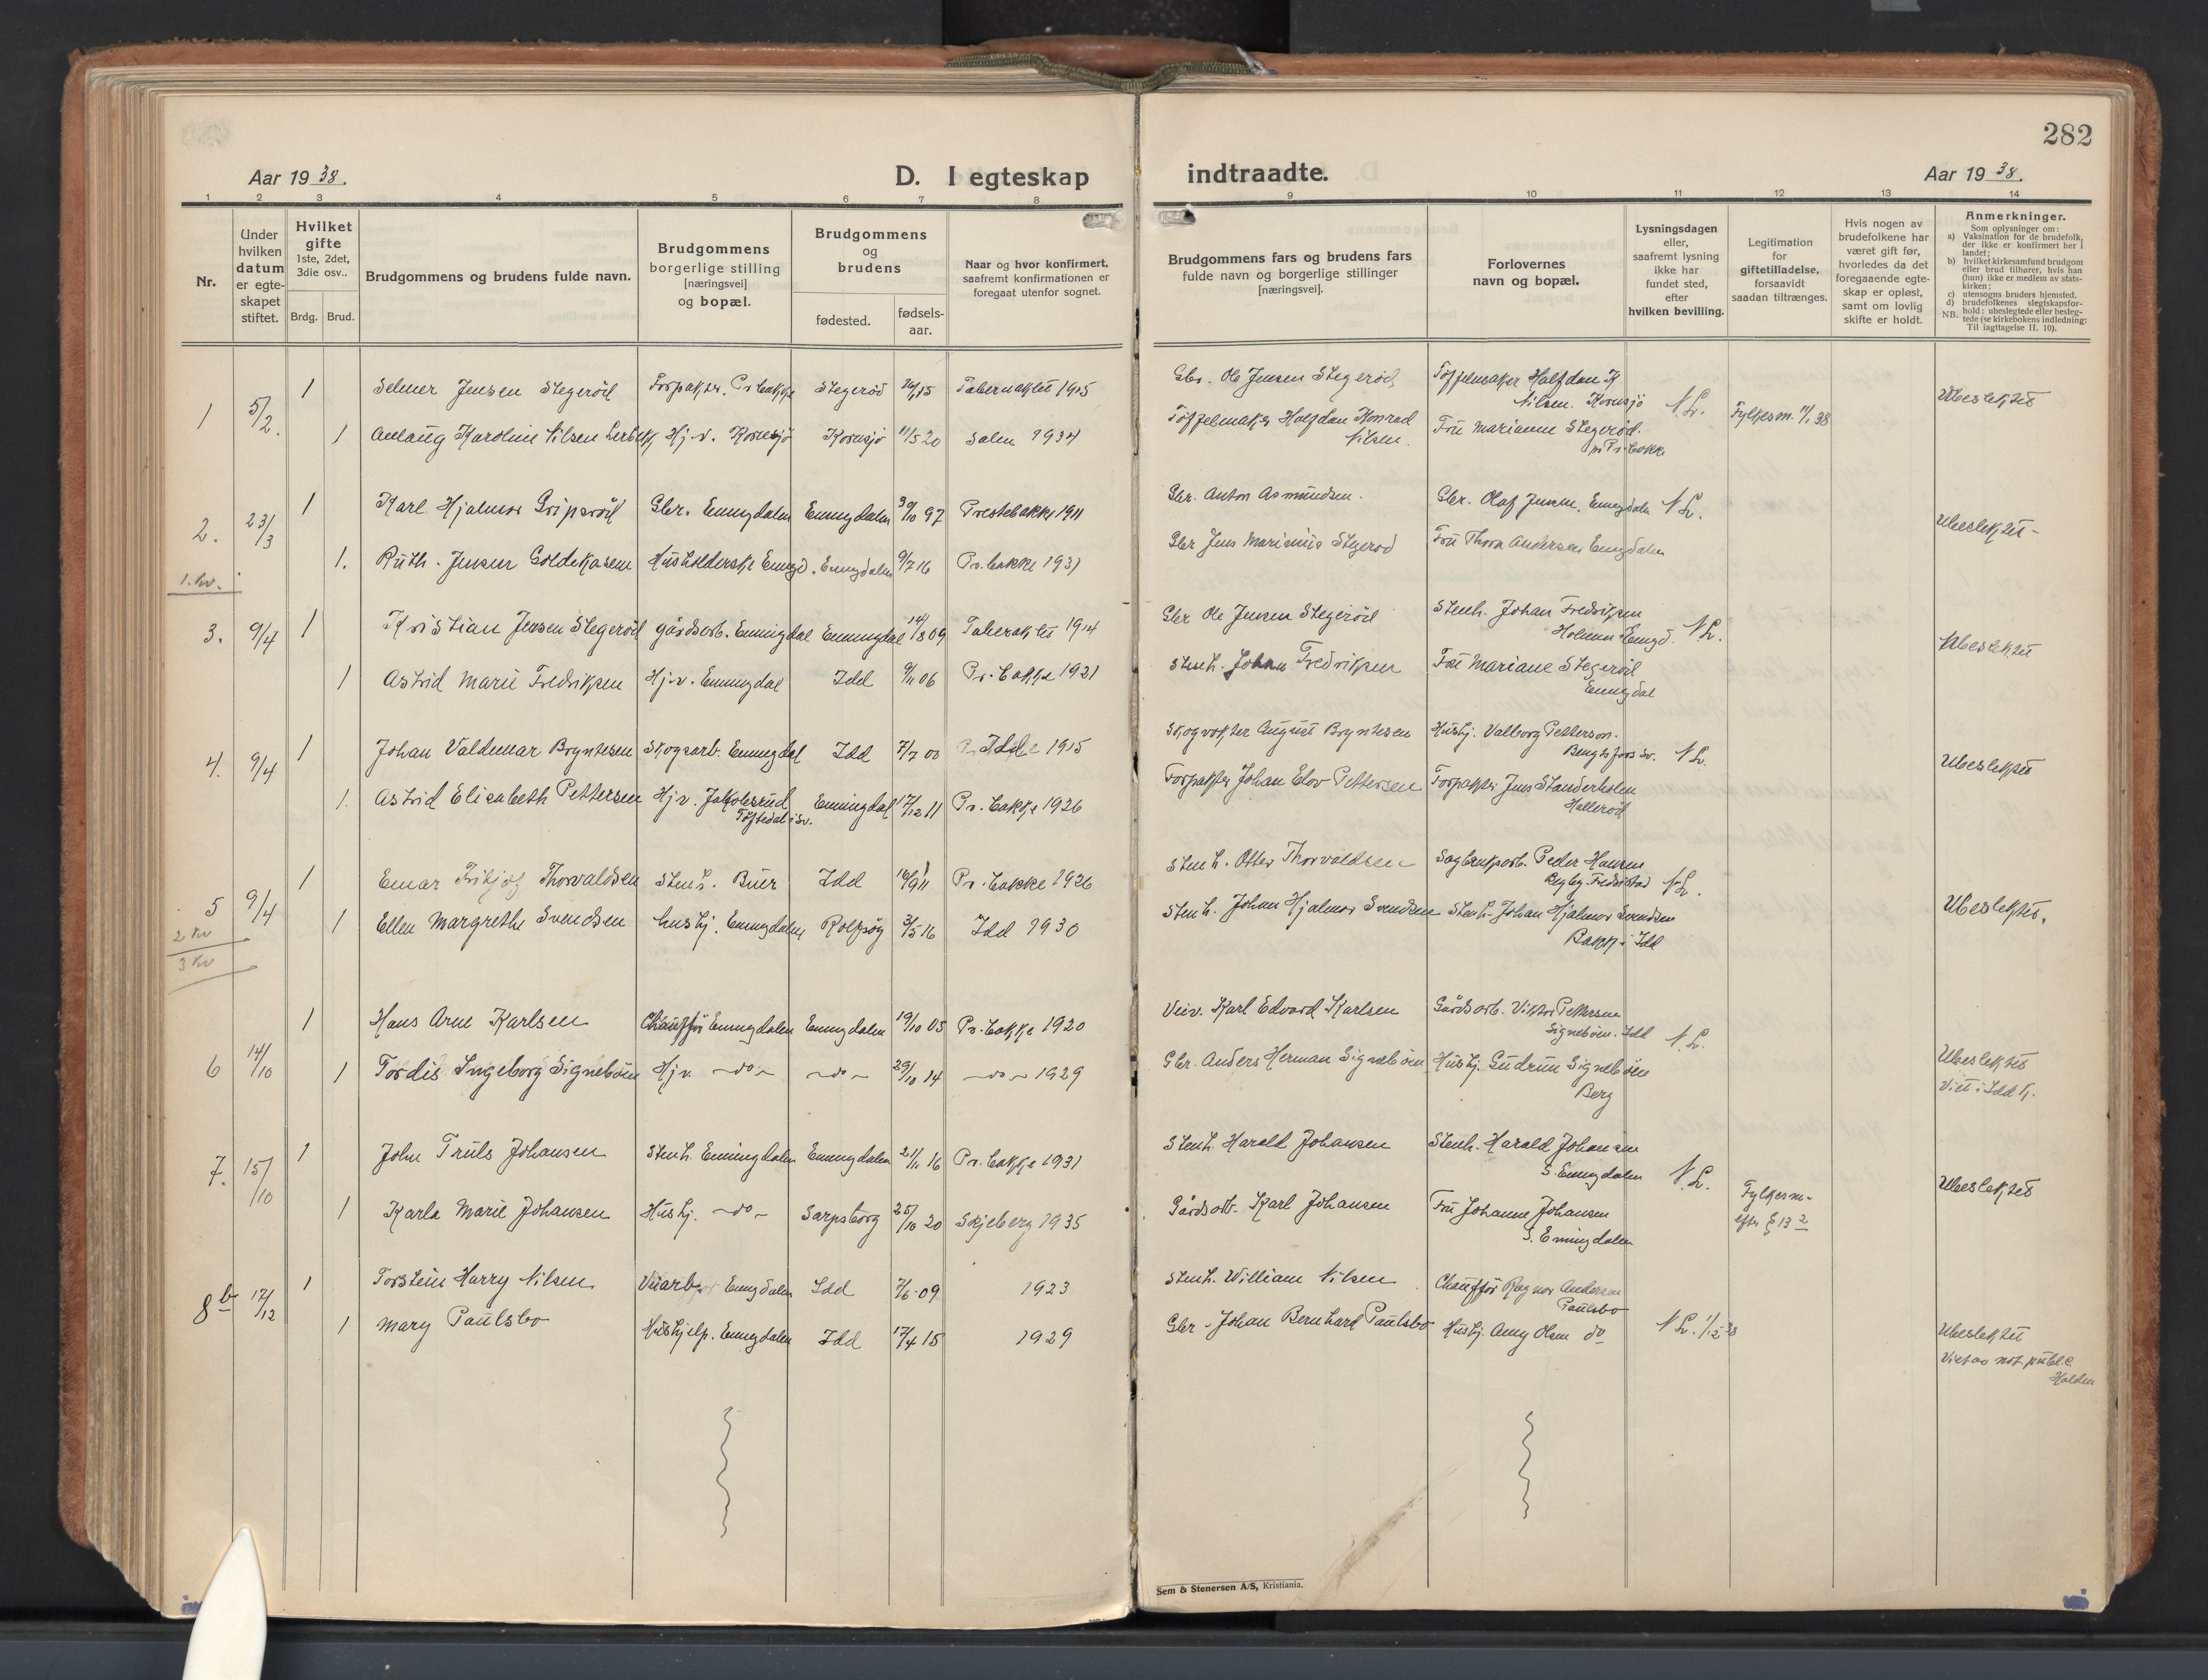 282
Aar 1938.
D. I egteskap
indtraadte.
Aar 1938.
1 2 3 4 5 6 7 8
9 10 11 12 13 14
Nr.
Under hvilken datum er egteskapet stiftet.
Hvilket gifte 1ste, 2det, 3die osv..
Brdg. Brud.
Brudgommens og brudens fulde navn.
Brudgommens borgerlige stilling [næringsvei] og bopæl.
Brudgommens og brudens
fødested.
fødsels-aar.
Naar og hvor konfirmert, saafremt konfirmationen er foregaat utenfor sognet.
Brudgommens fars og brudens fars fulde navn og borgerlige stillinger [næringsvei].
Forlovernes navn og bopæl.
Lysningsdagen eller, saafremt lysning ikke har fundet sted, efter hvilken bevilling.
Legitimation for giftetilladelse, forsaavidt saadan tiltrænges.
Hvis nogen av brudefolkene har været gift før, hvorledes da det foregaaende egteskap er opløst, samt om lovlig skifte er holdt.
Anmerkninger.
Som oplysninger om:
a) Vaksination for de brudefolk, der ikke er konfirmert her i landet;
b) hvilket kirkesamfund brudgom eller brud tilhører, hvis han (hun) ikke er medlem av statskirken;
c) utensogns bruders hjemsted.
d) brudefolkenes slegtskapsforhold: ubeslegtede eller beslegtede (se kirkebokens indledning: Til iagttagelse II. 10).
NB.
1 5/2. 1 Selmer Jensen Stegerød Forpakter. Pr.bakke Stegerød 15 1915
Gbr. Ole Jensen Stegerød Tøffelmaker Halfdan K Nilsen. Kornsjø N.L. Fylkesm. 38 Ubeslektet
1 Anlaug Karoline Nilsen Hj.v. Kornsjø Kornsjø 11/5 20 Salem 1934
Tøffelmaker Halfdan Konrad Nilsen. Fru Marianne Stegerød. Pr.bakke
2. 23/3 1 Karl Hjalmar Gripsrød Gbr. Enningdalen Enningdalen 30/10 97 Prestebakke 1911
Gbr. Anton Asmundsen. Gbr. Olaf Jensen, Enningdalen N.L. Ubeslektet
1. Ruth Jensen Goldekasem Husholderske Enngd. Enningdalen 9/7 16 Pr.bakke 1931
Gbr Jens Marinius Stegerød Fru Thora Andersen Enningdalen
1. kv.
3. 9/4 1 Kristian Jensen Stegerød gårdsarb. Enningdal Enningdal 14/3 09 1914
Gbr Ole Jensen Stegerød Stenh. Johan Fredriksen Holmen Enngd. N.L. Ubeslektet
1 Astrid Marie Fredriksen Hj.v. Enningdal Idd 9/11 06 Pr.bakke 1921
Stenh. Johan Fredriksen Fru Mariane Stegerød Enningdal
4. 9/4 1 Johan Valdemar Bryntesen Skogsarb. Enningdal Idd 7/7 00 Idd 1915
Skogvokter August Bryntesen Hushj. Valborg Petterson. Bengtsfors Sv. N.L. Ubeslektet
1. Astrid Elisabeth Pettersen Hj.v. Jakobsrud Töftedal i Sv. Enningdal 17/12 11 Pr.bakke 1926
Forpakter Johan Elov Pettersen Forpakter Jens Standerholen Hallerød
5 9/4 1 Einar Fritjof Thorvaldsen Stenh. Buer Idd 14/9 11 Pr.bakke 1926
Stenh. Otter Thorvaldsen Sagbruksarb. Peder Hansen Begby. Fredrikstad N.L. Ubeslektet.
1 Ellen Margrethe Svendsen hushj. Enningdalen Rolfsøy 3/5 16 Idd 1930
Stenh. Johan Hjalmar Svendsen Stenh. Johan Hjalmar Svendsen Bakke i Idd
2 kv
3 kv
6 14/10 1 Hans Arne Karlsen Chauffør Enningdalen Enningdalen 19/10 05 Pr.bakke 1920
Veiv. Karl Edvard Karlsen Gårdsarb. Viktor Pettersen Signebøen. Idd N.L.
1 Tordis Ingeborg Signebøen Hj.v. -do- -do- 29/10 14 -do- 1929
Gbr. Anders Herman Signebøen Hushj. Gudrun Signebøen Berg Ubeslektet Viet i Idd k.
7. 15/10 1 John Truls Johansen Stenh. Enningdalen Enningdalen 21/11 16 Pr.bakke 1931
Stenh. Harald Johansen Stenh. Harald Johansen S. Enningdalen N.L. Fylkesm. efter § 13 2 Ubeslektet
1 Karla Marie Johansen Hushj. -do- Sarpsborg 25/10 20 Skjeberg 1935
Gårdsarb. Karl Johansen Fru Johanne Johansen S. Enningdalen
8b 17/12 1 Torstein Harry Nilsen Veiarb. Enningdalen Idd 7/6 09 1923
Stenh. William Nilsen Chauffør Ragnar Andersen Paulsbo
1 Mary Paulsbo Hushjelp. Enningdalen Idd 17/4 15 1929
Gbr. Johan Bernhard Paulsbo Hushj. Amy Olsen do N.L. 1/12 38 Ubeslektet
Viet av not. publ. Halden
Sem & Stenersen A/S, Kristiania.